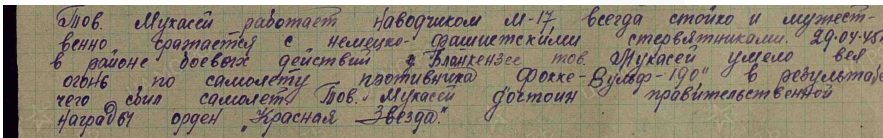 Тов. Мукасей работает наводчиком М-17 всегда стойко и мужест-
венно сражается с немецко-фашистскими стервятниками. 29.04.45г
в районе боевых действий д. Бланкензее тов. Мукасей умело вел
огонь по самолету противника Фокке-Вульф-190" в результате
чего сбил самолет. Тов. Мукасей достоин правительственной
награды орден "Красная Звезда".